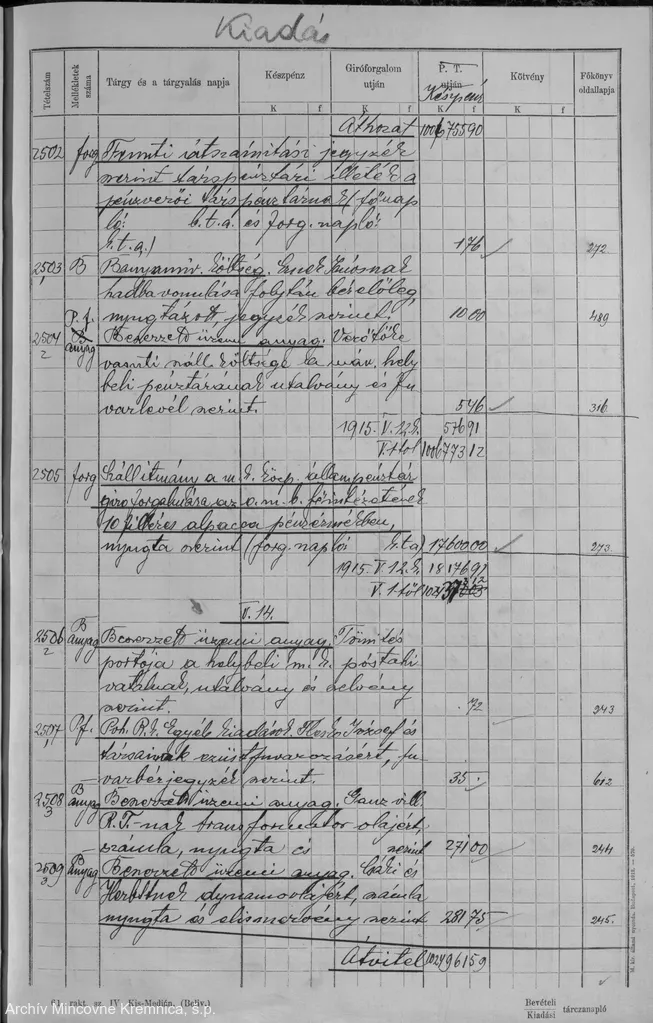 Kiadás
Tételszám
Mellékletek száma
Tárgy és a tárgyalás napja
Készpénz
Giróforgalom utján
P. T. utján
Készpénz
Kötvény
Főkönyv oldallapja
K f K f K f K f
Áthozat 1006 755 90
2502 forg Fennti átszámitási jegyzék
szerint társpénztári illeték a
pénzverői társpénztárnak (főnap
ló: b.t.a. és forg. napló:
k.t.a.) 1 76 272.
2503 B Bányamiv. költség. Ernek Jánosnak
hadbavonulása folytán bérelőleg,
nyugtázott jegyzék szerint. 10 00 489
2504 P.f. B anyag Beszerzett üzemi anyag. Vörötőke
vasuti száll. költsége a máv. hely
beli pénztárának utalvány és fu
varlevél szerint. 5 46 316
1915. V. 12. k. 576 91
V. 1 től 1006 773 12
2505 forg Szállitmány a m. k. közp. állampénztár
giro forgalmára az o. m. b. főintézetének
10 filléres alpacca pénzérmékben,
nyugta szerint (forg. napló: k.t.a) 17600 00 273.
1915. V. 12. k. 18176 91
V. 1 től
V. 14.
2506 B anyag Beszerzett üzemi anyag. Tömítés
portója a helybeli m. k. póstahi
vatalnak, utalvány és szelvény
szerint. 72 243
2507 Pf. Poh. R. k. Egyéb kiadások. József és
társainak ezüst fuvarozásért, fu
varbérjegyzék szerint. 35 612
2508 B anyag Beszerzett üzemi anyag. Ganz vill.
R.T.-nak transformator olajért,
számla, nyugta és szerint 271 00 244
2509 B anyag Beszerzett üzemi anyag. és
dynamoolajért, számla
nyugta és elismervény szerint 281 75 245.
Átvitel 1024 961 59
61. rakt. sz. IV. Kis-Medián. (Beliv.)
Bevételi
Kiadási tárczanapló
Archív Mincovne Kremnica, š.p.